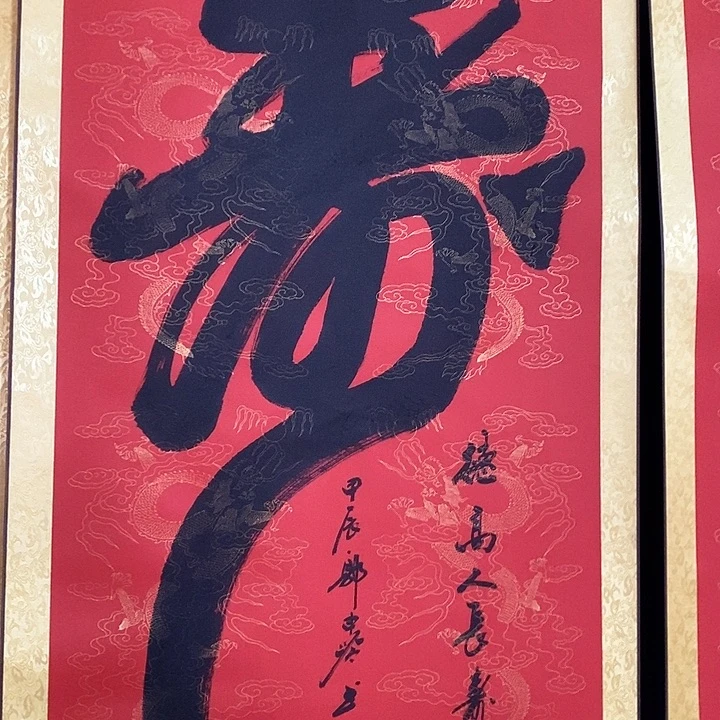 寿
德高人長壽
甲辰 书